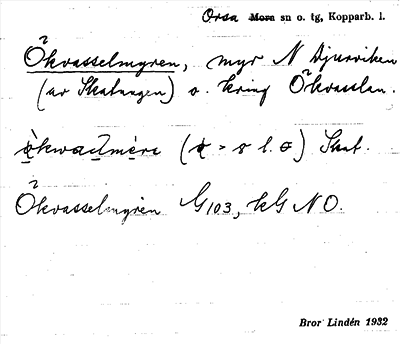 Orsa Mora sn o. tg, Kopparb. l.
Ökvasselmyren, myr N Djurviken
(av Skatungen) o. kring Ökvasslan.
(= s l. ɵ) Skat.
Ökvasselmyren G103, kG NO.
Bror Lindén 1932